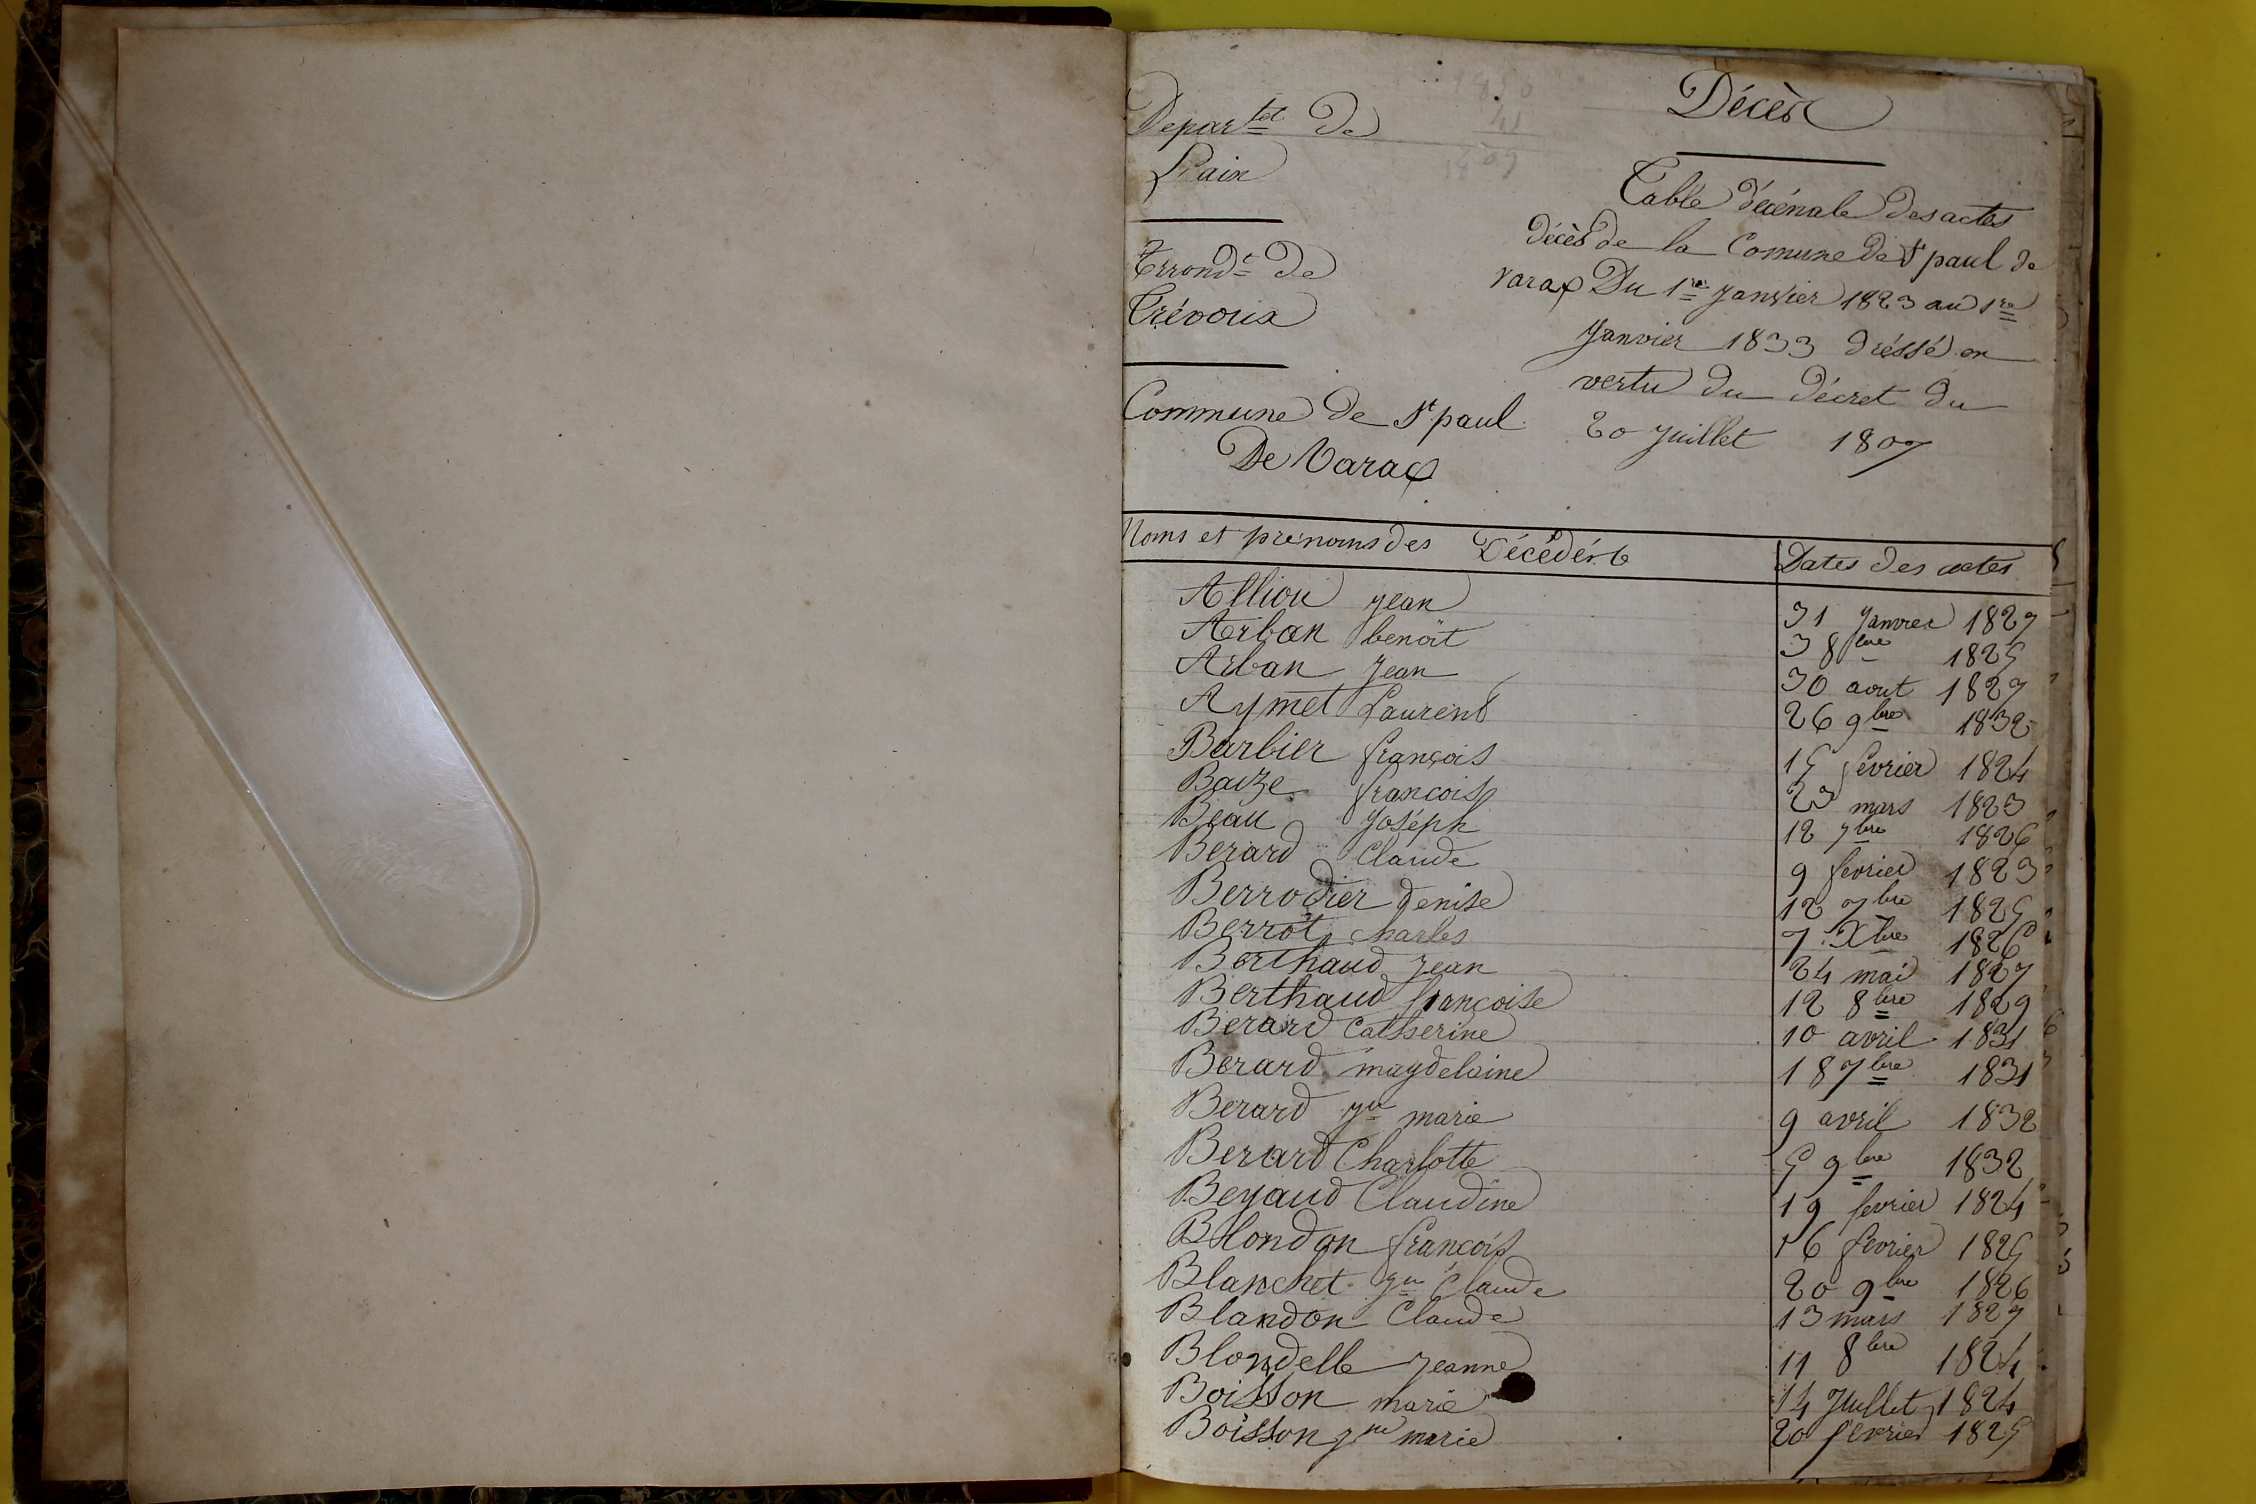 Décès
Depart.t de
L'ain
Arrond.t de
Trévoux
Commune de St paul
De Varax
Table décénale des actes
décès de la Comune de St paul de
varax Du 1re Janvier 1823 au 1re
Janvier 1833 dréssé en
vertu du décret du
20 Juillet 1807
Noms et prénoms des Décédés Dates des actes
Alliou Jean 31 Janvier 1827
Arban benoit 3 8bre 1825
Arban Jean 30 aout 1827
Aymet Laurent 26 9bre 1832
Barbier françois 15 fevrier 1824
Baize francois 23 mars 1823
Beau Joséph 12 7bre 1826
Berard Claude 9 fevrier 1823
Berrodier denise 12 7bre 1825
Berrot charles 7 Xbre 1826
Berthaud Jean 24 mai 1827
Berthaud francoise 12 8bre 1829
Berard Catherine 10 avril 1831
Berard magdelaine 18 7bre 1831
Berard marie 9 avril 1832
Berard Charlotte 5 9bre 1832
Beyaud Claudine 19 fevrier 1824
Blondon françois 16 fevrier 1825
Blanchet Claude 20 9bre 1826
Blandon Claude 13 mars 1827
Blondelle Jeanne 11 8bre 1824
Boisson marie 14 Juillet 1824
Boisson jne marie 20 fevrier 1825